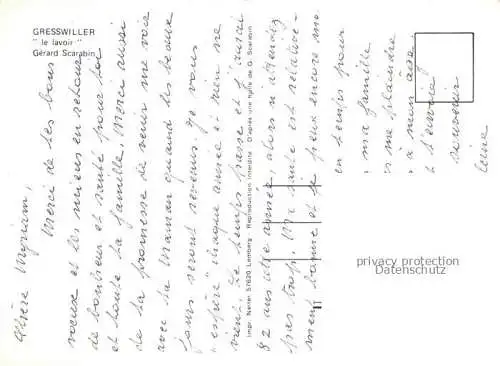 GRESSWILLER
" le lavoir "
Gérard Scarabin
Chère Myriam,
Merci de tes bons
voeux et les miens en retour
de bonheur et santé pour toi
et toute ta famille. Merci aussi
de ta promesse de venir me voir
avec ta maman quand les beaux
jours seront revenus. Je vous
espère chaque année et rien ne
vient. Le temps passe et j'aurai
82 ans cette année, alors n'attendez
pas trop. Ma santé est relative-
ment bonne et je peux encore
en temps pour
ma famille
me plaindre
à mon âge.
souvenir
Impr. Nenter 57620 Lemberg. Reproduction interdite. D'après une huile de G. Scarabin
privacy protection
Datenschutz